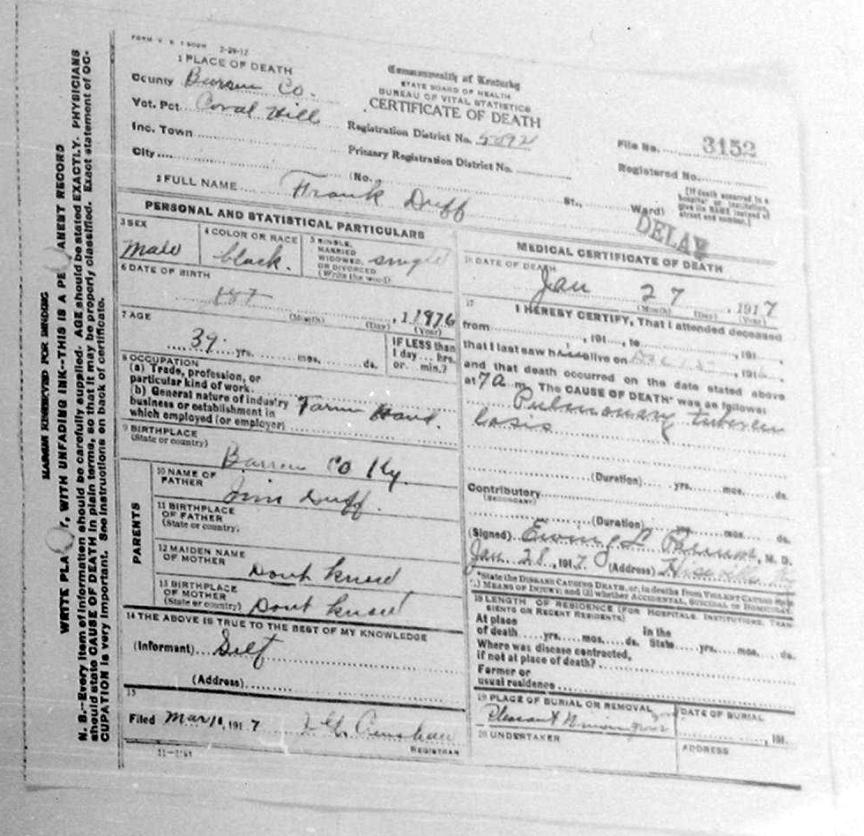 2-29-12
1 PLACE OF DEATH
County Barren Co.
Vot. Pct. Coral Hill
Inc. Town
City
Commonwealth of Kentucky
STATE BOARD OF HEALTH
BUREAU OF VITAL STATISTICS
CERTIFICATE OF DEATH
Registration District No. 5092
Primary Registration District No.
(No. St., Ward)
File No. 3152
Registered No.
[If death occurred in a
hospital or institution,
give its NAME instead of
street and number.]
2 FULL NAME Frank Duff
DELAY
PERSONAL AND STATISTICAL PARTICULARS
3 SEX
Male
4 COLOR OR RACE
black.
5 SINGLE,
MARRIED
WIDOWED,
OR DIVORCED
(Write the word)
single
6 DATE OF BIRTH
(Month) (Day) (Year)
7 AGE
39 yrs. mos. ds.
IF LESS than
1 day hrs.
or min.?
8 OCCUPATION
(a) Trade, profession, or
particular kind of work
(b) General nature of industry
business or establishment in
which employed (or employer)
Farm Hand.
9 BIRTHPLACE
(State or country)
Barren Co Ky.
PARENTS
10 NAME OF
FATHER
Jim Duff.
11 BIRTHPLACE
OF FATHER
(State or country)
12 MAIDEN NAME
OF MOTHER
Dont know
13 BIRTHPLACE
OF MOTHER
(State or country)
Dont know
14 THE ABOVE IS TRUE TO THE BEST OF MY KNOWLEDGE
(Informant) Self
(Address)
15
Filed Mar 10, 1917
REGISTRAR
MEDICAL CERTIFICATE OF DEATH
16 DATE OF DEATH
Jan 27, 1917
(Month) (Day) (Year)
17
I HEREBY CERTIFY, That I attended deceased
from , 191 , to , 191 ,
that I last saw him alive on Dec , 191 ,
and that death occurred on the date stated above
at 7 A m. The CAUSE OF DEATH* was as follows:
Pulmonary tubercu
losis
(Duration) yrs. mos. ds.
Contributory
(SECONDARY)
(Duration) yrs. mos. ds.
(Signed) Ewing L , M. D.
Jan 28, 1917 (Address) Hiseville Ky
*State the DISEASE CAUSING DEATH, or, in deaths from VIOLENT CAUSES
MEANS OF INJURY; and (2) whether ACCIDENTAL, SUICIDAL or HOMICIDAL
18 LENGTH OF RESIDENCE (FOR HOSPITALS, INSTITUTIONS, TRAN
SIENTS OR RECENT RESIDENTS)
At place In the
of death yrs. mos. ds. State yrs. mos. ds.
Where was disease contracted,
if not at place of death?
Former or
usual residence
19 PLACE OF BURIAL OR REMOVAL
Pleasant
DATE OF BURIAL
, 191
20 UNDERTAKER
ADDRESS
MARGIN RESERVED FOR BINDING
WRITE PLA Y, WITH UNFADING INK--THIS IS A PE ANENT RECORD
N. B.--Every item of information should be carefully supplied. AGE should be stated EXACTLY. PHYSICIANS
should state CAUSE OF DEATH in plain terms, so that it may be properly classified. Exact statement of OC-
CUPATION is very important. See instructions on back of certificate.